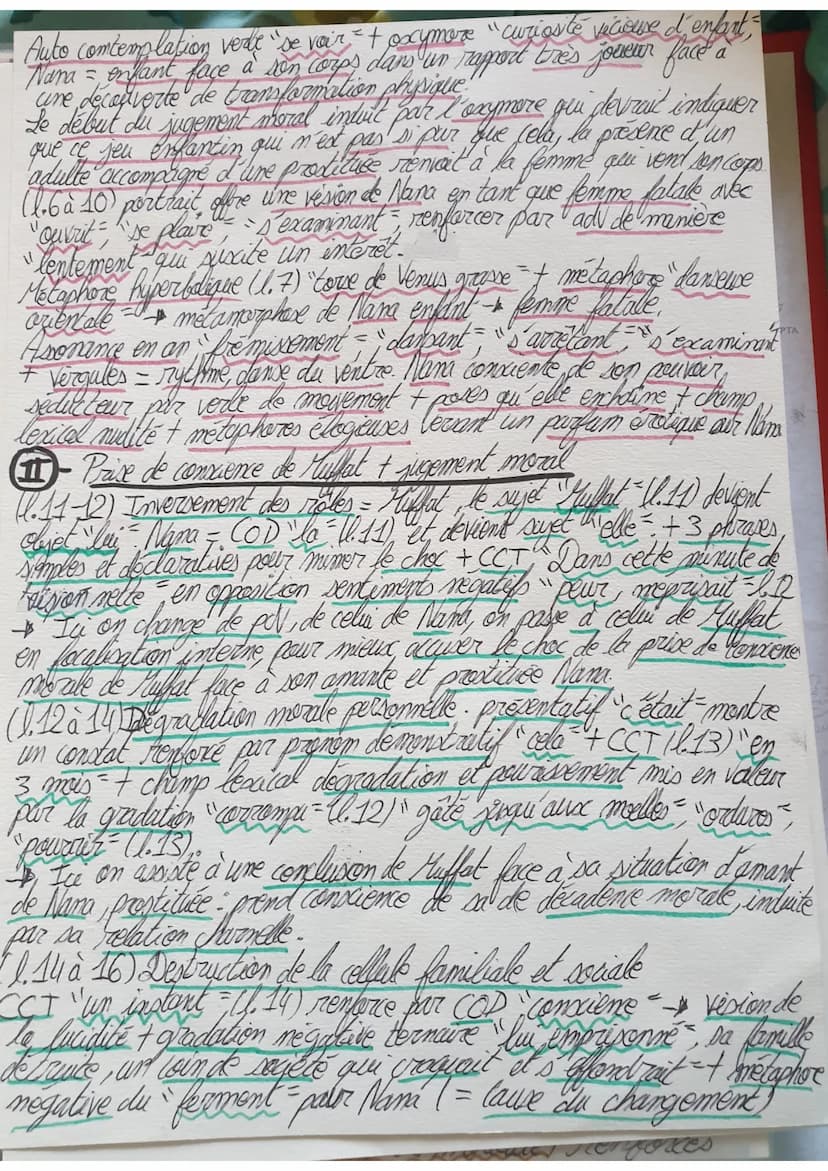 Auto comtemplation verbe "se voir" + oxymore "curiosité vicieuse d'enfant,"
Nana = enfant face à son corps dans un rapport très joueur face à
une découverte de transformation physique.
Le début du jugement moral induit par l'oxymore qui devrait indiquer
que ce jeu enfantin qui n'est pas si pur que cela, la présence d'un
adulte accompagné d'une prostituée renvoit à la femme qui vend son corps
(l.6 à 10) portrait offre une vision de Nana en tant que femme fatale avec
"ouvrit", "se plaire", "s'examinant", renforcer par adv de manière
"lentement" qui suscite un interêt.
Métaphore hyperbolique (l.7) "torse de Venus grasse" + métaphore "danseuse
orientale" → métamorphose de Nana enfant → femme fatale.
Assonance en an "frémissement", "dansant", "s'arrêtant", "s'examinant"
+ virgules = rythme, danse du ventre. Nana consciente, de son pouvoir,
séducteur par verbe de mouvement + poses qu'elle enchaîne + champ
lexical nudité + métaphores élogieuses versant un parfum érotique sur Nana
II - Prise de conscience de Muffat + jugement moral
(l.11-12) Inversement des rôles = Muffat, le sujet "Muffat" (l.11) devient
objet "lui" Nana = COD "la" (l.11) et devient sujet "elle". + 3 phrases
simples et déclaratives pour mimer le choc + CCT "Dans cette minute de
vision nette" en opposition sentiments négatifs "peur, méprisait" l.12
→ Ici on change de pdV, de celui de Nana, on passe à celui de Muffat
en focalisation interne, pour mieux accuser le choc de la prise de conscience
morale de Muffat face à son amante et prostituée Nana.
(l.12 à 14) Dégradation morale personnelle. présentatif "c'était" montre
un constat renforcé par pronom démonstratif "cela" + CCT (l.13) "en
3 mois" + champ lexical dégradation et pourrissement mis en valeur
par la gradation "corrompu" (l.12) "gâté jusqu'aux moelles", "ordures",
"pourrait" (l.13).
→ Ici on assiste à une conclusion de Muffat face à sa situation d'amant
de Nana, prostituée : prend conscience de sa de décadence morale, induite
par sa relation charnelle.
(l.14 à 16) Destruction de la cellule familiale et sociale
CCT "un instant" (l.14) renforce par COD "conscience" → vision de
la lucidité + gradation négative ternaire "lui, emprisonné", sa famille
detruite, un coin de société qui craquait et s'effondrait" + métaphore
négative du "ferment" pour Nana (= cause du changement)
renforcés